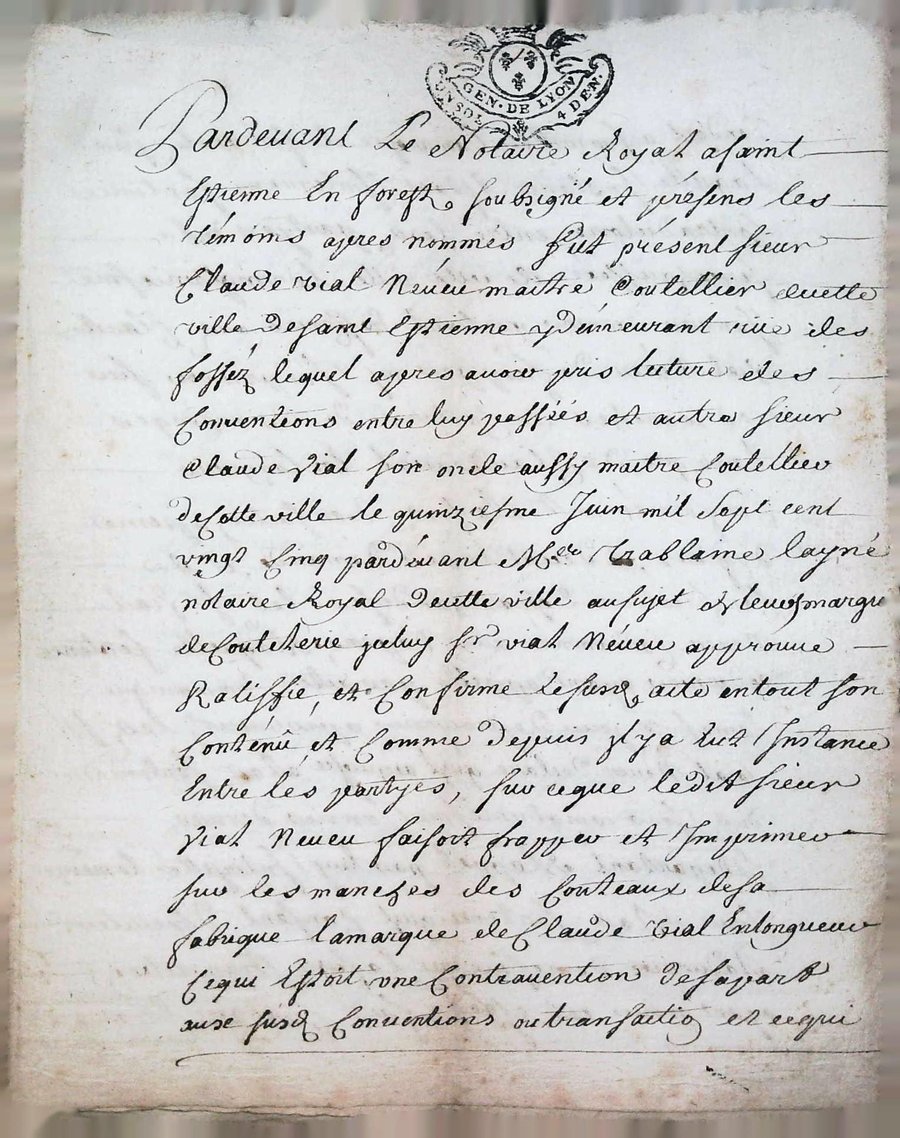 UN SOL GEN. DE LYON 4 DEN.
Pardevant Le Notaire Royal a saint
Estienne En forest, soubsigné et présens les
témoins apres nommés fut présent sieur
Claude vial Néveu maitre Coutellier decette
ville desaint Estienne y démeurant rüe des
fossez lequel apres avoir pris lecture des
Conventions entre luy passées et autre sieur
Claude Vial son oncle aussy maitre Coutellier
de Cette ville le quinziesme Juin mil Sept cent
vingt Cinq pardevant Me Trablaine layné
notaire Royal decette ville au sujet de leurs marque
de Coutelerie jceluy sr vial Néveu approuve
Ratiffie, et Confirme le susd acte en tout son
Conténû et Comme depuis jl y a eut Instance
Entre lés partyes, sur ceque ledit sieur
Vial Neveu faisoit frapper et Imprimer
sur les manches des Couteaux de sa
fabrique lamarque de Claude vial En longueur
Ce qui Estoit une Contravention de sa part
aux susd Conventions ou transactio et ce qui